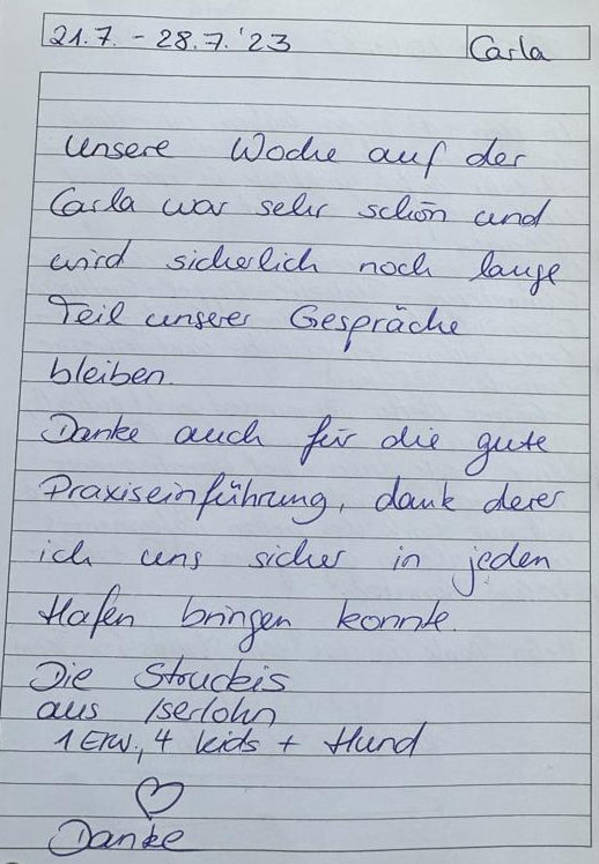 21.7. - 28.7.'23 Carla
Unsere Woche auf der
Carla war sehr schön und
wird sicherlich noch lange
Teil unserer Gespräche
bleiben.
Danke auch für die gute
Praxiseinführung, dank derer
ich uns sicher in jeden
Hafen bringen konnte.
Die Struckis
aus Iserlohn
1 Erw., 4 kids + Hund
♡
Danke